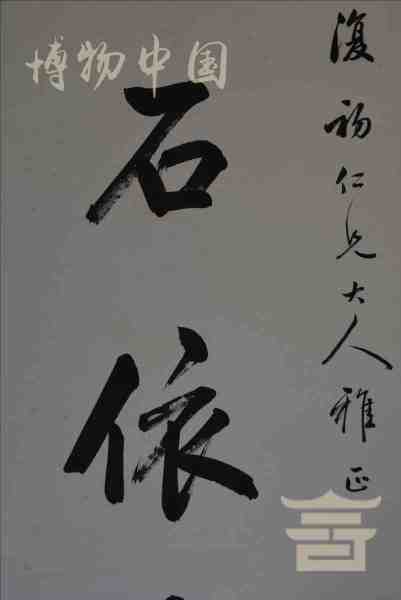 博物中国
復初仁兄大人雅正
石依